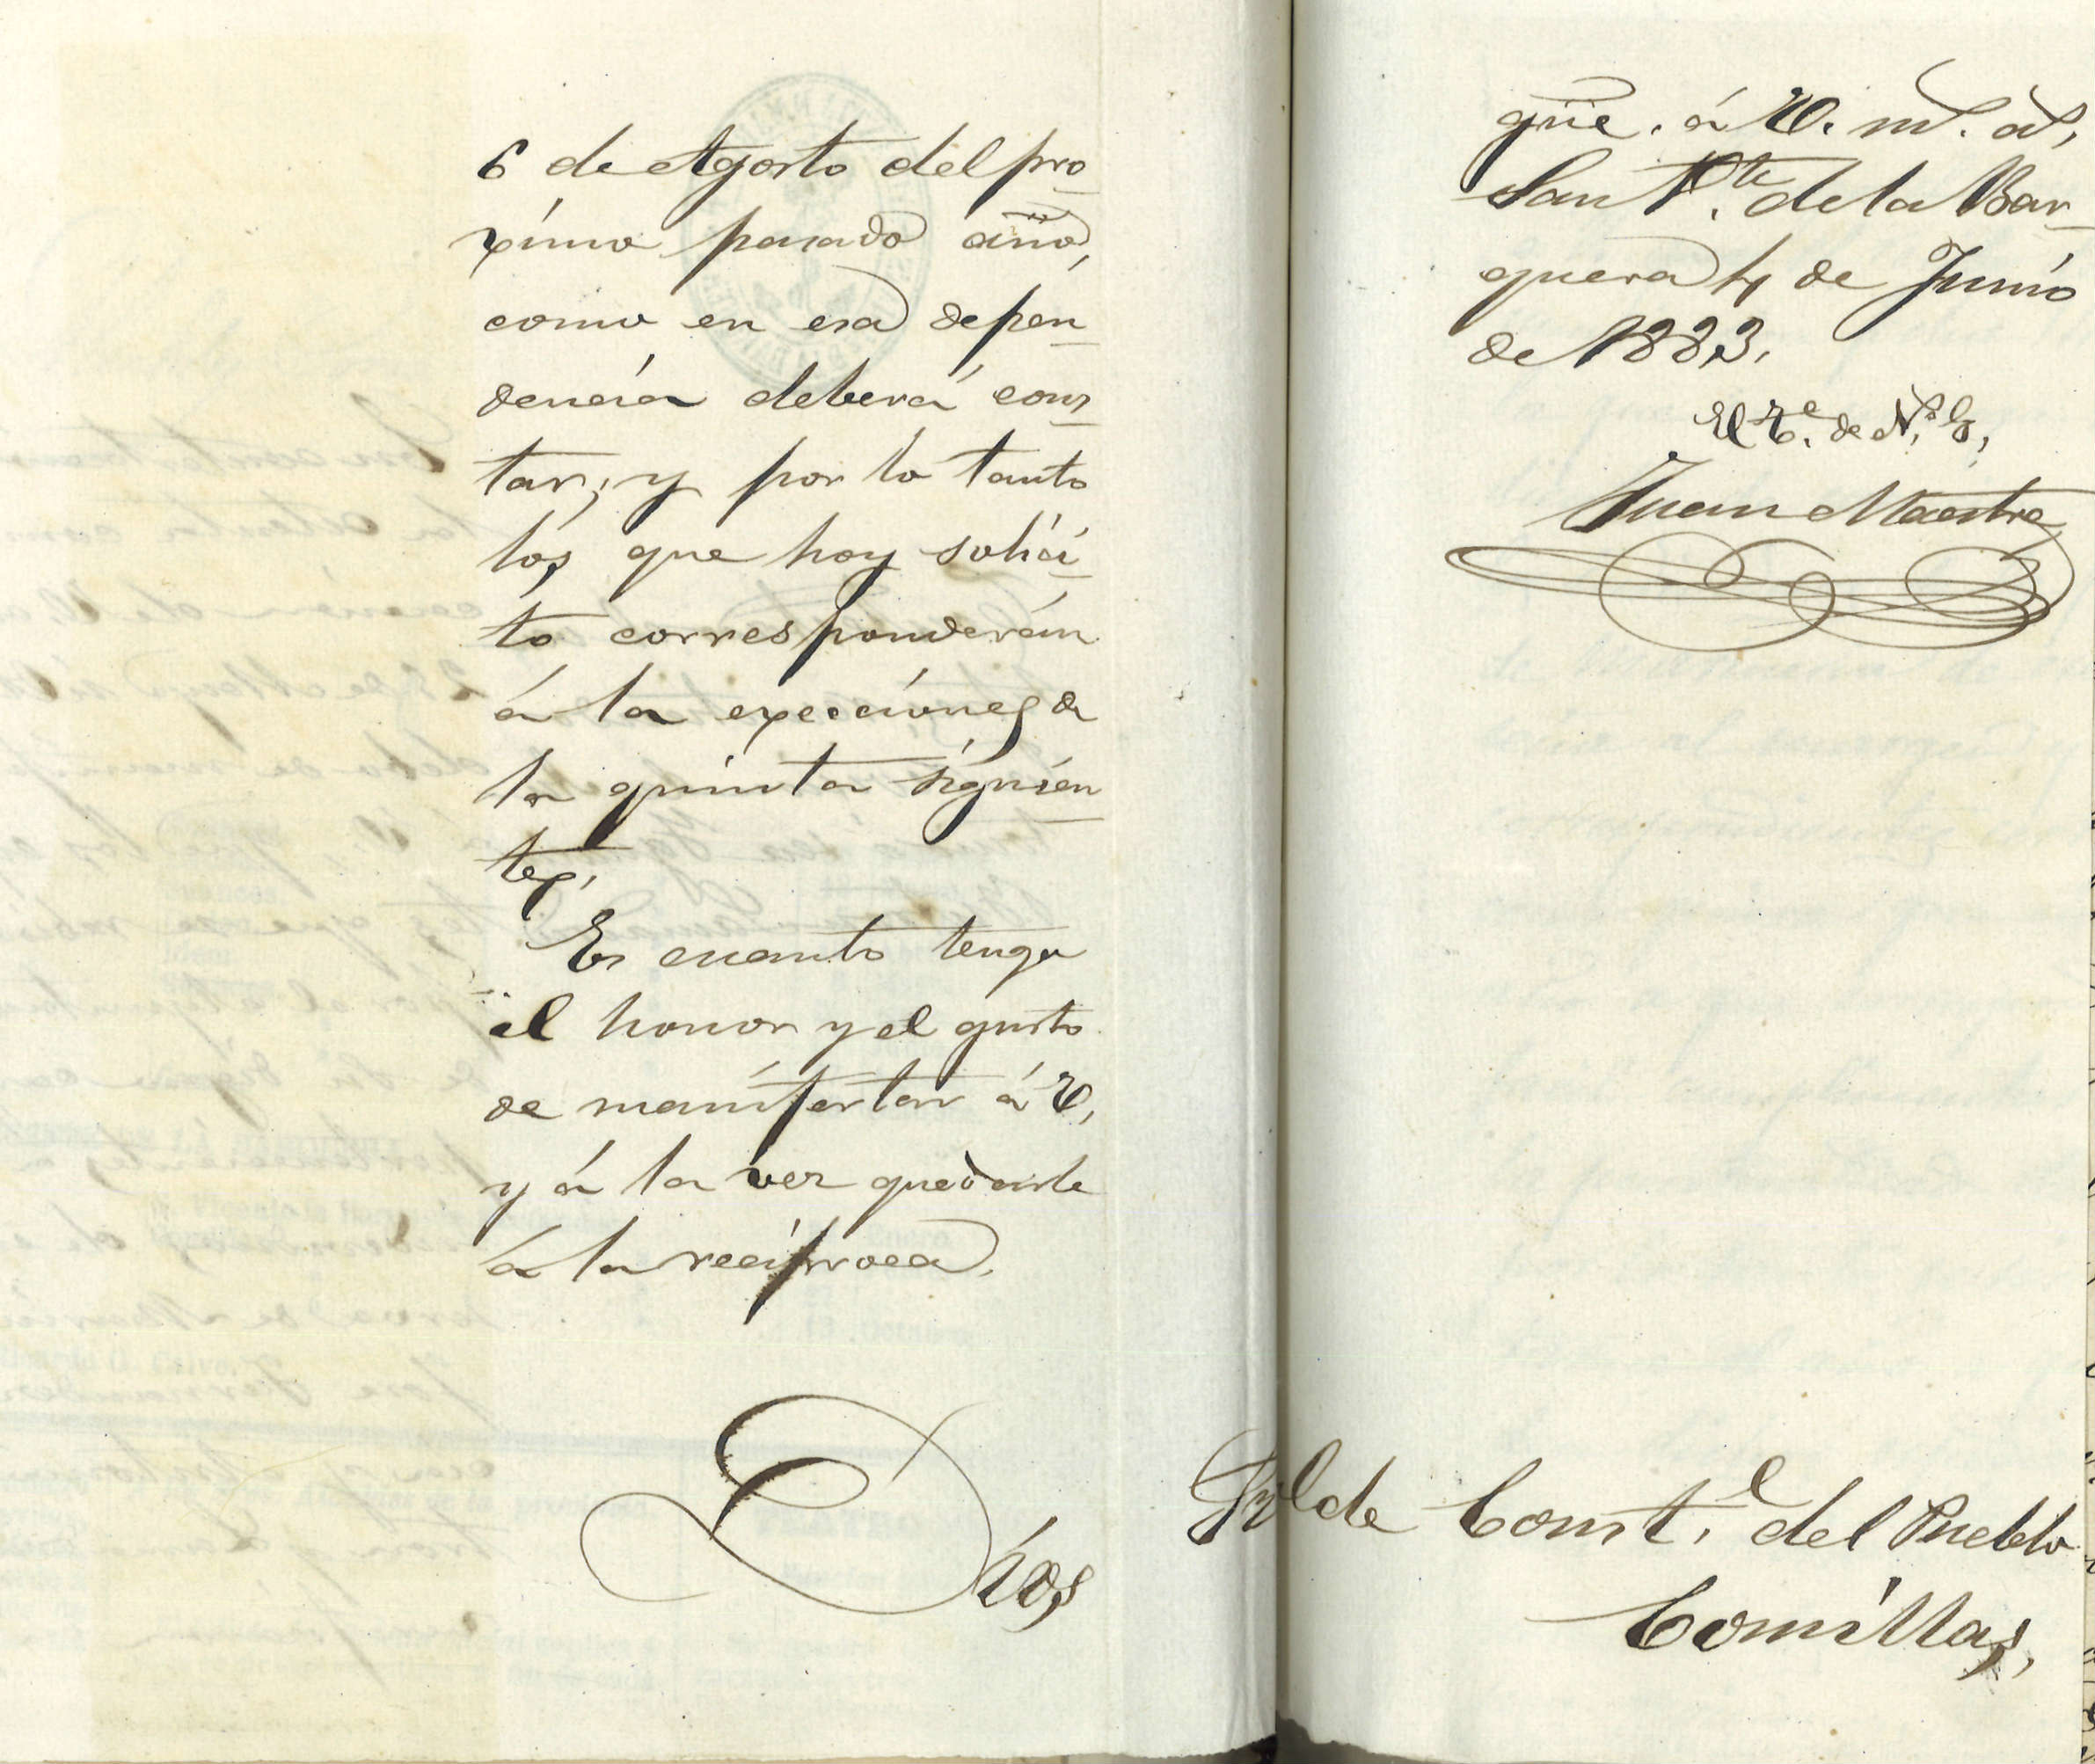 6 de Agosto del pro
ximo pasado año,
como en esa depen
dencia deberá cons
tar; y por lo tanto
los que hoy solici
to corresponderán
á la execciones de
la quinta siguien
tes,
Es cuanto tengo
el honor y el gusto
de manifestar á V,
y á la vez quedarle
á la reciproca.
Dios
güe. á V. ms. as,
San Vte. de la Bar
quera 4 de Junio
de 1883,
El Te. de N. G,
Juan Maestre
Const.l del Pueblo
Comillas,